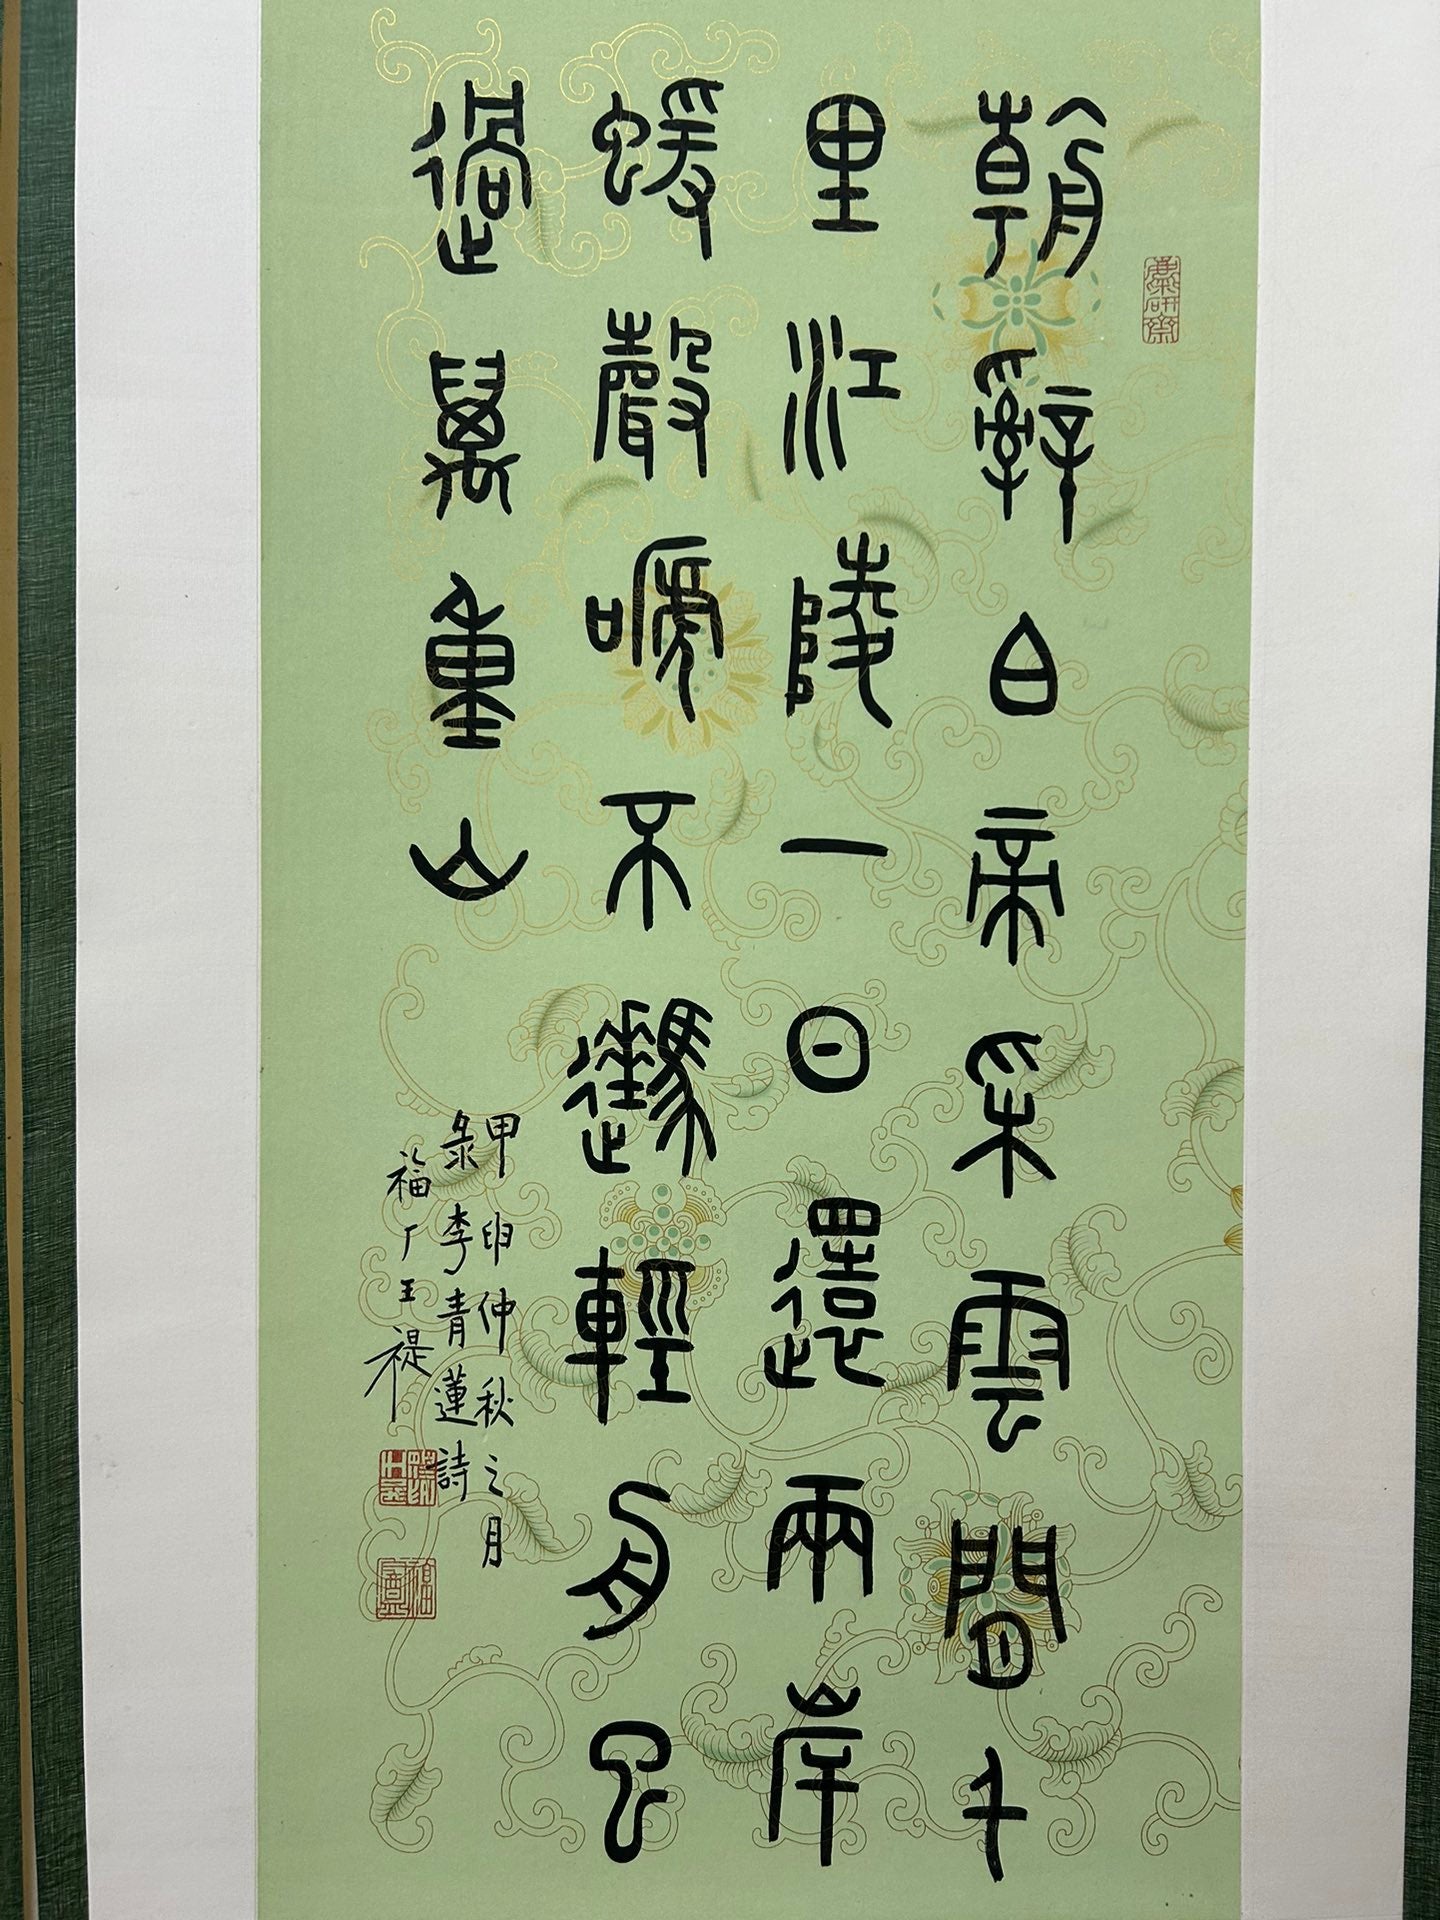 朝辭白帝采雲間千
里江陵一日還兩岸
蝯聲嗁不
輕舟已
過萬重山
甲申仲秋之月
彔李青蓮詩
福厂王禔